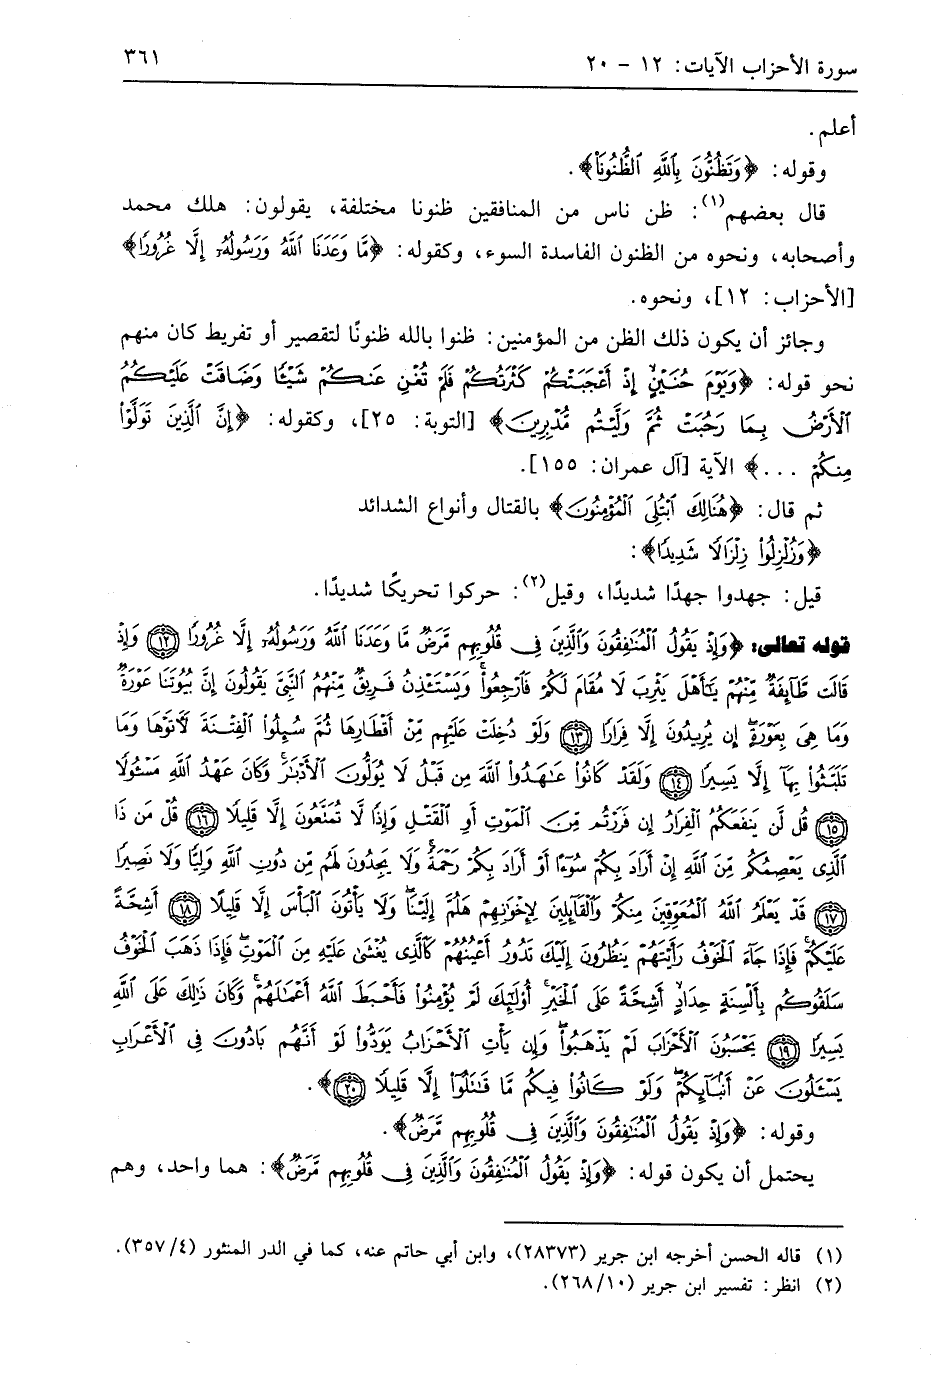 سورة الأحزاب الآيات: ١٢ - ٢٠
٣٦١
أعلم.
وقوله: ﴿وَتَظُنُّونَ بِٱللَّهِ ٱلظُّنُونَا۠﴾.
قال بعضهم(١): ظن ناس من المنافقين ظنونا مختلفة، يقولون: هلك محمد
وأصحابه، ونحوه من الظنون الفاسدة السوء، وكقوله: ﴿مَّا وَعَدَنَا ٱللَّهُ وَرَسُولُهُۥٓ إِلَّا غُرُورًا﴾
[الأحزاب: ١٢]، ونحوه.
وجائز أن يكون ذلك الظن من المؤمنين: ظنوا بالله ظنونًا لتقصير أو تفريط كان منهم
نحو قوله: ﴿وَيَوْمَ حُنَيْنٍ إِذْ أَعْجَبَتْكُمْ كَثْرَتُكُمْ فَلَمْ تُغْنِ عَنكُمْ شَيْـًٔا وَضَاقَتْ عَلَيْكُمُ
ٱلْأَرْضُ بِمَا رَحُبَتْ ثُمَّ وَلَّيْتُم مُّدْبِرِينَ﴾ [التوبة: ٢٥]، وكقوله: ﴿إِنَّ ٱلَّذِينَ تَوَلَّوْا۟
مِنكُمْ ...﴾ الآية [آل عمران: ١٥٥].
ثم قال: ﴿هُنَالِكَ ٱبْتُلِىَ ٱلْمُؤْمِنُونَ﴾ بالقتال وأنواع الشدائد
﴿وَزُلْزِلُوا۟ زِلْزَالًا شَدِيدًا﴾:
قيل: جهدوا جهدًا شديدًا، وقيل(٢): حركوا تحريكًا شديدًا.
قوله تعالى: ﴿وَإِذْ يَقُولُ ٱلْمُنَـٰفِقُونَ وَٱلَّذِينَ فِى قُلُوبِهِم مَّرَضٌ مَّا وَعَدَنَا ٱللَّهُ وَرَسُولُهُۥٓ إِلَّا غُرُورًا ١٢ وَإِذْ
قَالَت طَّآئِفَةٌ مِّنْهُمْ يَـٰٓأَهْلَ يَثْرِبَ لَا مُقَامَ لَكُمْ فَٱرْجِعُوا۟ وَيَسْتَـْٔذِنُ فَرِيقٌ مِّنْهُمُ ٱلنَّبِىَّ يَقُولُونَ إِنَّ بُيُوتَنَا عَوْرَةٌ
وَمَا هِىَ بِعَوْرَةٍ إِن يُرِيدُونَ إِلَّا فِرَارًا ١٣ وَلَوْ دُخِلَتْ عَلَيْهِم مِّنْ أَقْطَارِهَا ثُمَّ سُئِلُوا۟ ٱلْفِتْنَةَ لَـَٔاتَوْهَا وَمَا
تَلَبَّثُوا۟ بِهَآ إِلَّا يَسِيرًا ١٤ وَلَقَدْ كَانُوا۟ عَـٰهَدُوا۟ ٱللَّهَ مِن قَبْلُ لَا يُوَلُّونَ ٱلْأَدْبَـٰرَ وَكَانَ عَهْدُ ٱللَّهِ مَسْـُٔولًا
١٥ قُل لَّن يَنفَعَكُمُ ٱلْفِرَارُ إِن فَرَرْتُم مِّنَ ٱلْمَوْتِ أَوِ ٱلْقَتْلِ وَإِذًا لَّا تُمَتَّعُونَ إِلَّا قَلِيلًا ١٦ قُلْ مَن ذَا
ٱلَّذِى يَعْصِمُكُم مِّنَ ٱللَّهِ إِنْ أَرَادَ بِكُمْ سُوٓءًا أَوْ أَرَادَ بِكُمْ رَحْمَةً وَلَا يَجِدُونَ لَهُم مِّن دُونِ ٱللَّهِ وَلِيًّا وَلَا نَصِيرًا
١٧ قَدْ يَعْلَمُ ٱللَّهُ ٱلْمُعَوِّقِينَ مِنكُمْ وَٱلْقَآئِلِينَ لِإِخْوَٰنِهِمْ هَلُمَّ إِلَيْنَا وَلَا يَأْتُونَ ٱلْبَأْسَ إِلَّا قَلِيلًا ١٨ أَشِحَّةً
عَلَيْكُمْ فَإِذَا جَآءَ ٱلْخَوْفُ رَأَيْتَهُمْ يَنظُرُونَ إِلَيْكَ تَدُورُ أَعْيُنُهُمْ كَٱلَّذِى يُغْشَىٰ عَلَيْهِ مِنَ ٱلْمَوْتِ فَإِذَا ذَهَبَ ٱلْخَوْفُ
سَلَقُوكُم بِأَلْسِنَةٍ حِدَادٍ أَشِحَّةً عَلَى ٱلْخَيْرِ أُو۟لَـٰٓئِكَ لَمْ يُؤْمِنُوا۟ فَأَحْبَطَ ٱللَّهُ أَعْمَـٰلَهُمْ وَكَانَ ذَٰلِكَ عَلَى ٱللَّهِ
يَسِيرًا ١٩ يَحْسَبُونَ ٱلْأَحْزَابَ لَمْ يَذْهَبُوا۟ وَإِن يَأْتِ ٱلْأَحْزَابُ يَوَدُّوا۟ لَوْ أَنَّهُم بَادُونَ فِى ٱلْأَعْرَابِ
يَسْـَٔلُونَ عَنْ أَنۢبَآئِكُمْ وَلَوْ كَانُوا۟ فِيكُم مَّا قَـٰتَلُوٓا۟ إِلَّا قَلِيلًا ٢٠﴾.
وقوله: ﴿وَإِذْ يَقُولُ ٱلْمُنَـٰفِقُونَ وَٱلَّذِينَ فِى قُلُوبِهِم مَّرَضٌ﴾.
يحتمل أن يكون قوله: ﴿وَإِذْ يَقُولُ ٱلْمُنَـٰفِقُونَ وَٱلَّذِينَ فِى قُلُوبِهِم مَّرَضٌ﴾: هما واحد، وهم
(١) قاله الحسن أخرجه ابن جرير (٢٨٣٧٣)، وابن أبي حاتم عنه، كما في الدر المنثور (٣٥٧/٤).
(٢) انظر: تفسير ابن جرير (٢٦٨/١٠).